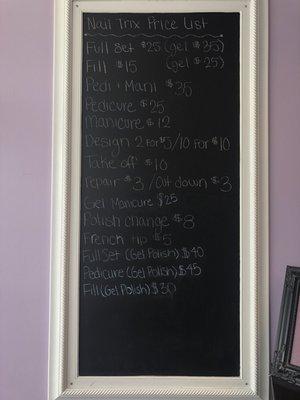 Nail Trix Price List
Full Set $25 (gel $35)
Fill $15 (gel $25)
Pedi + Mani $35
Pedicure $25
Manicure $12
Design 2 For $5/10 For $10
Take off $10
repair $3 /Cut down $3
Gel Manicure $25
Polish change $8
French tip $5
Full Set (Gel Polish) $40
Pedicure (Gel Polish) $45
Fill (Gel Polish) $30